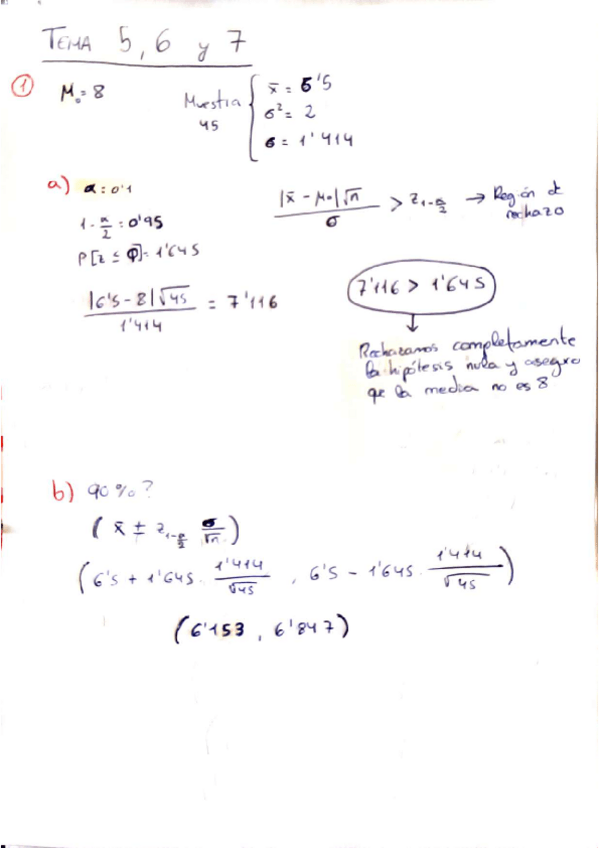 TEMA 5, 6 y 7
① M₀ = 8
Muestra 45 { x̄ = 6'5
σ² = 2
σ = 1'414
a) α = 0'1
1 - α/2 = 0'95
P[z ≤ φ] = 1'645
|x̄ - μ₀|√n / σ > z₁₋α/2 → Región de rechazo
|6'5 - 8|√45 / 1'414 = 7'116
7'116 > 1'645
↓
Rechazamos completamente
la hipótesis nula y aseguro
que la media no es 8
b) 90%?
(x̄ ± z₁₋α/2 σ/√n)
(6'5 + 1'645 · 1'414/√45 , 6'5 - 1'645 · 1'414/√45)
(6'153 , 6'847)